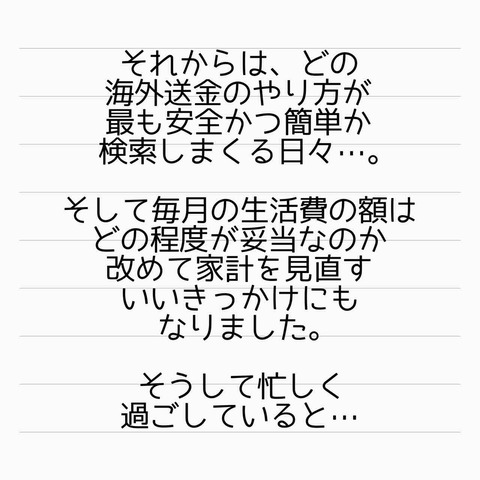 それからは、どの
海外送金のやり方が
最も安全かつ簡単か
検索しまくる日々…。
そして毎月の生活費の額は
どの程度が妥当なのか
改めて家計を見直す
いいきっかけにも
なりました。
そうして忙しく
過ごしていると…